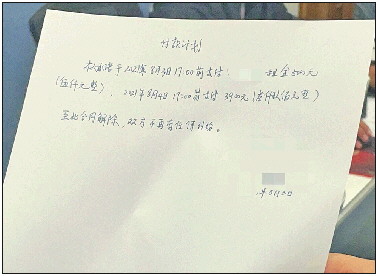 付款计划
本人承诺于2021年8月3日17:00前支付 租金5000元
(伍仟元整)、2021年8月4日17:00前支付3900元(叁仟玖佰元整)
至此合同解除,双方不再有任何纠纷。
年8月3日